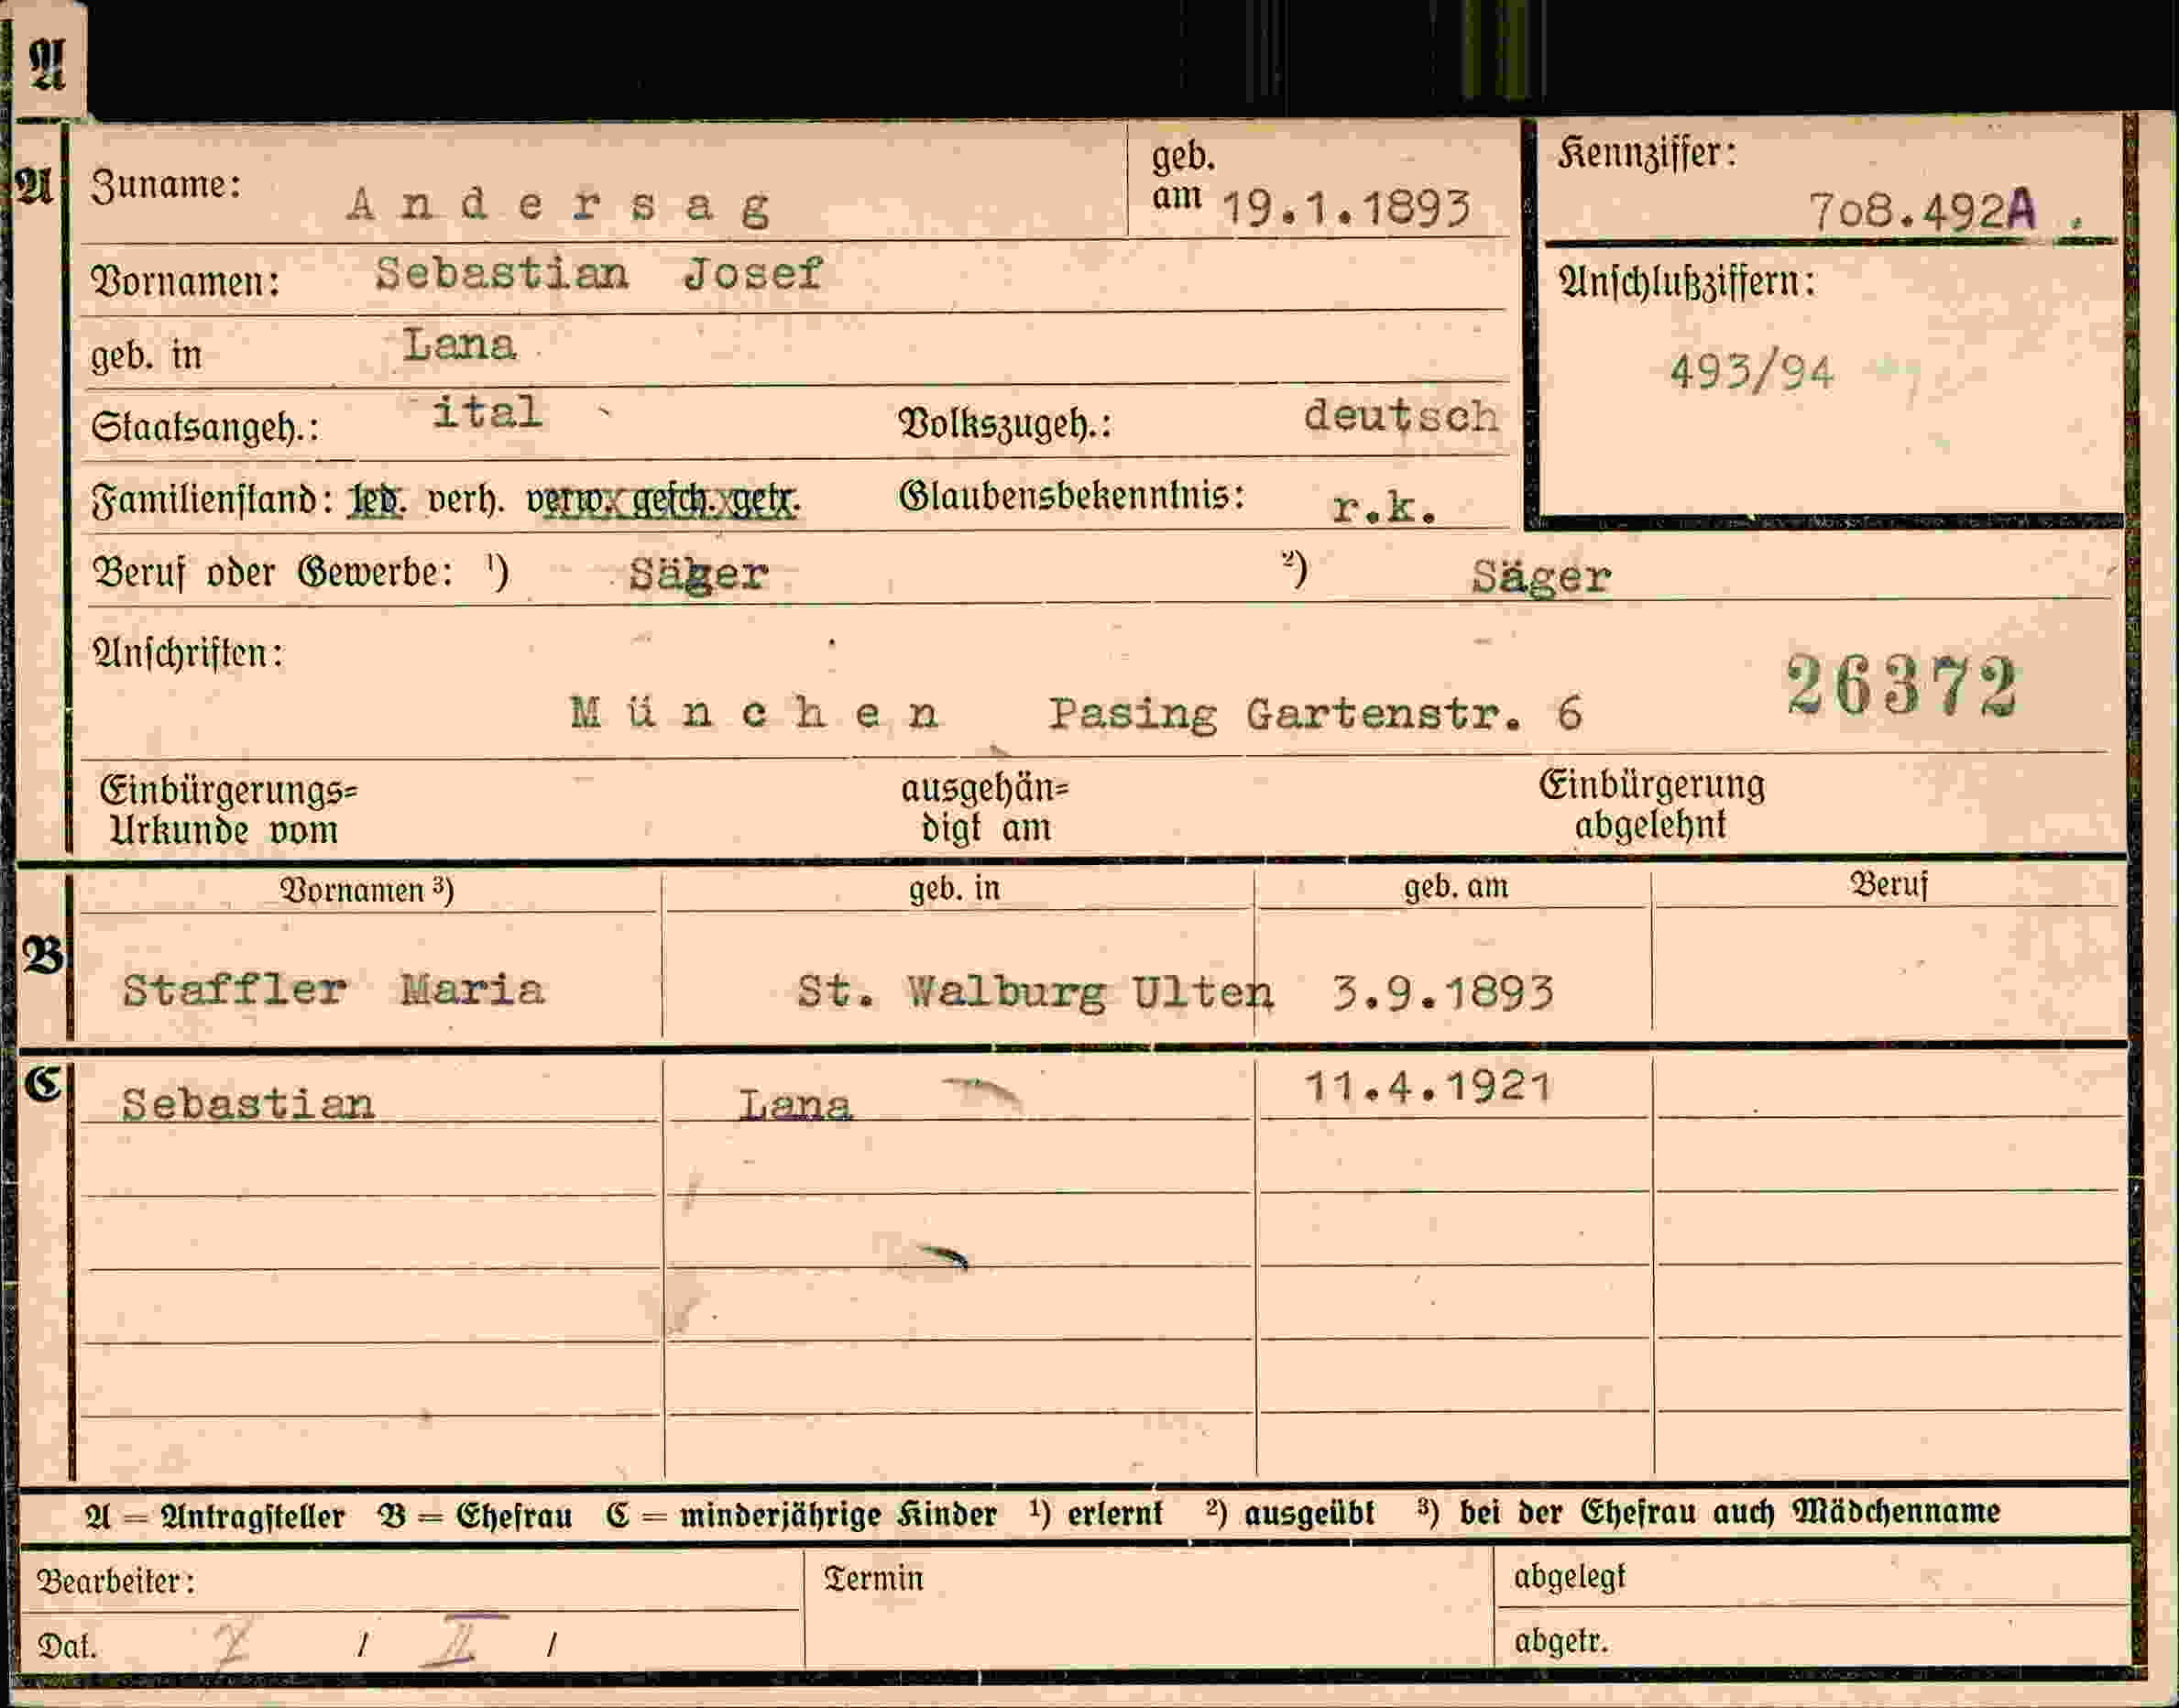 A
A
Zuname: Andersag geb. am 19.1.1893
Kennziffer: 7o8.492A
Vornamen: Sebastian Josef
Anschlußziffern:
geb. in Lana
493/94
Staatsangeh.: ital Volkszugeh.: deutsch
Familienstand: led. verh. verw. gesch. getr. Glaubensbekenntnis: r.k.
Beruf oder Gewerbe: 1) Säger 2) Säger
Anschriften:
München Pasing Gartenstr. 6
26372
Einbürgerungs= Urkunde vom ausgehän= digt am Einbürgerung abgelehnt
Vornamen 3) geb. in geb. am Beruf
B
Staffler Maria St. Walburg Ulten 3.9.1893
C
Sebastian Lana 11.4.1921
A = Antragsteller B = Ehefrau C = minderjährige Kinder 1) erlernt 2) ausgeübt 3) bei der Ehefrau auch Mädchenname
Bearbeiter: Termin abgelegt
Dat. / II / abgetr.